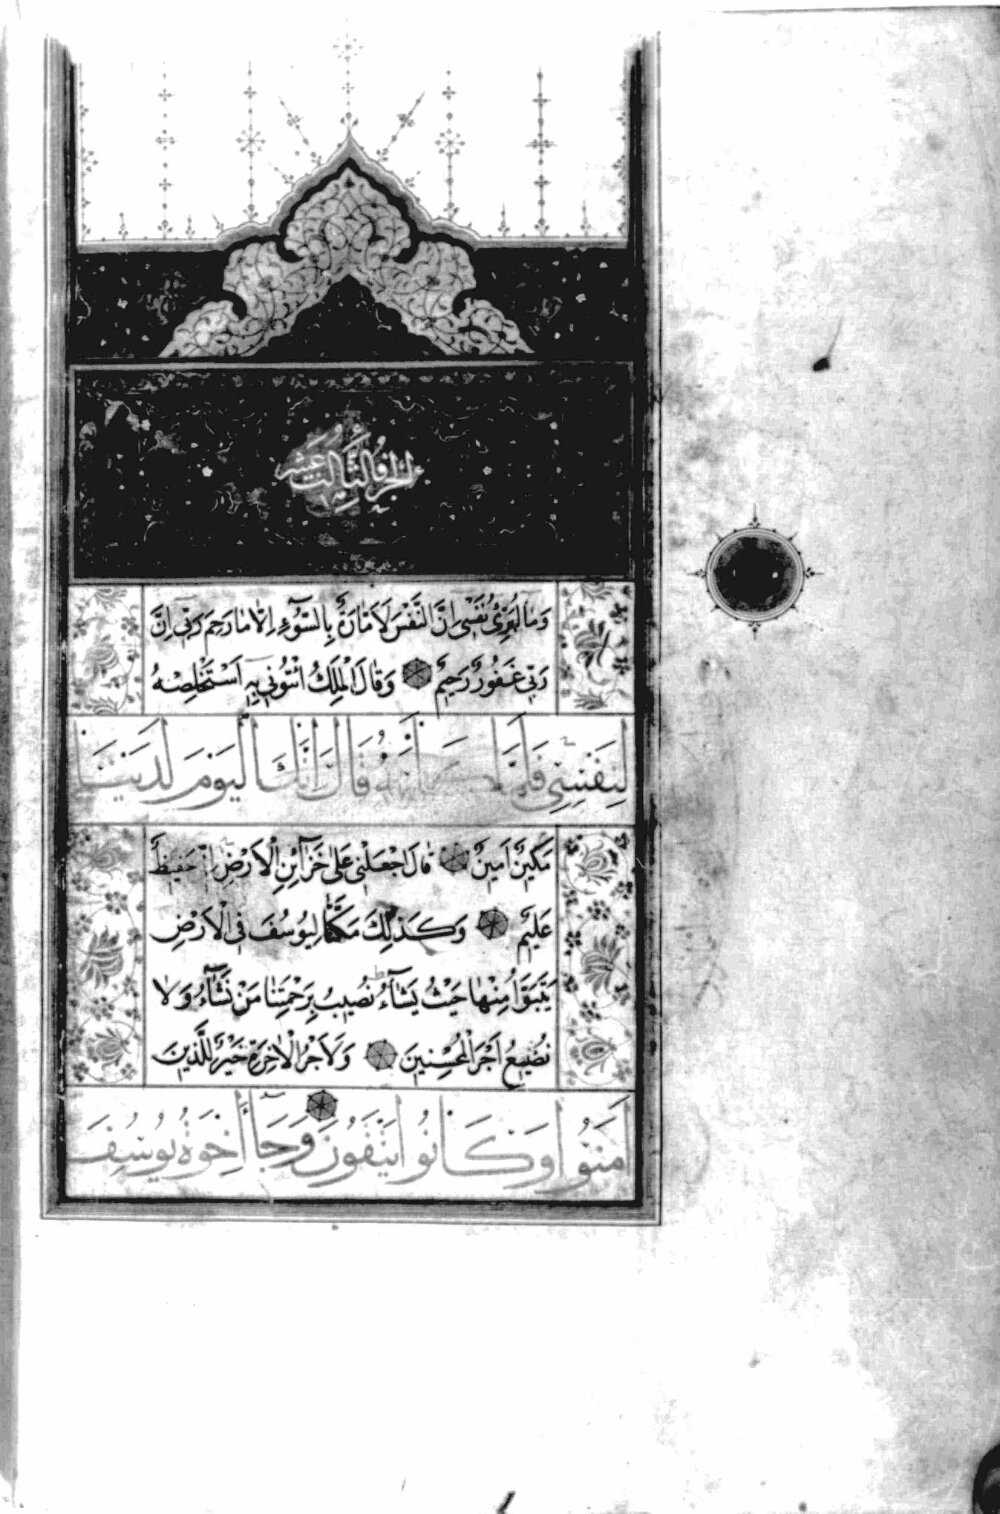 الجزء الثالث عشر
وَمَا اُبَرِّئُ نَفْسٖى اِنَّ النَّفْسَ لَاَمَّارَةٌ بِالسُّوءِ اِلَّا مَا رَحِمَ رَبّٖى اِنَّ
رَبّٖى غَفُورٌ رَحٖيمٌ وَقَالَ الْمَلِكُ ائْتُونٖى بِهٖ اَسْتَخْلِصْهُ
لِنَفْسٖى فَلَمَّا كَلَّمَهُ قَالَ اِنَّكَ الْيَوْمَ لَدَيْنَا
مَكٖينٌ اَمٖينٌ قَالَ اجْعَلْنٖى عَلٰى خَزَآئِنِ الْاَرْضِ اِنّٖى حَفٖيظٌ
عَلٖيمٌ وَكَذٰلِكَ مَكَّنَّا لِيُوسُفَ فِى الْاَرْضِ
يَتَبَوَّاُ مِنْهَا حَيْثُ يَشَآءُ نُصٖيبُ بِرَحْمَتِنَا مَنْ نَشَآءُ وَلَا
نُضٖيعُ اَجْرَ الْمُحْسِنٖينَ وَلَاَجْرُ الْاٰخِرَةِ خَيْرٌ لِلَّذٖينَ
اٰمَنُوا وَكَانُوا يَتَّقُونَ وَجَآءَ اِخْوَةُ يُوسُفَ